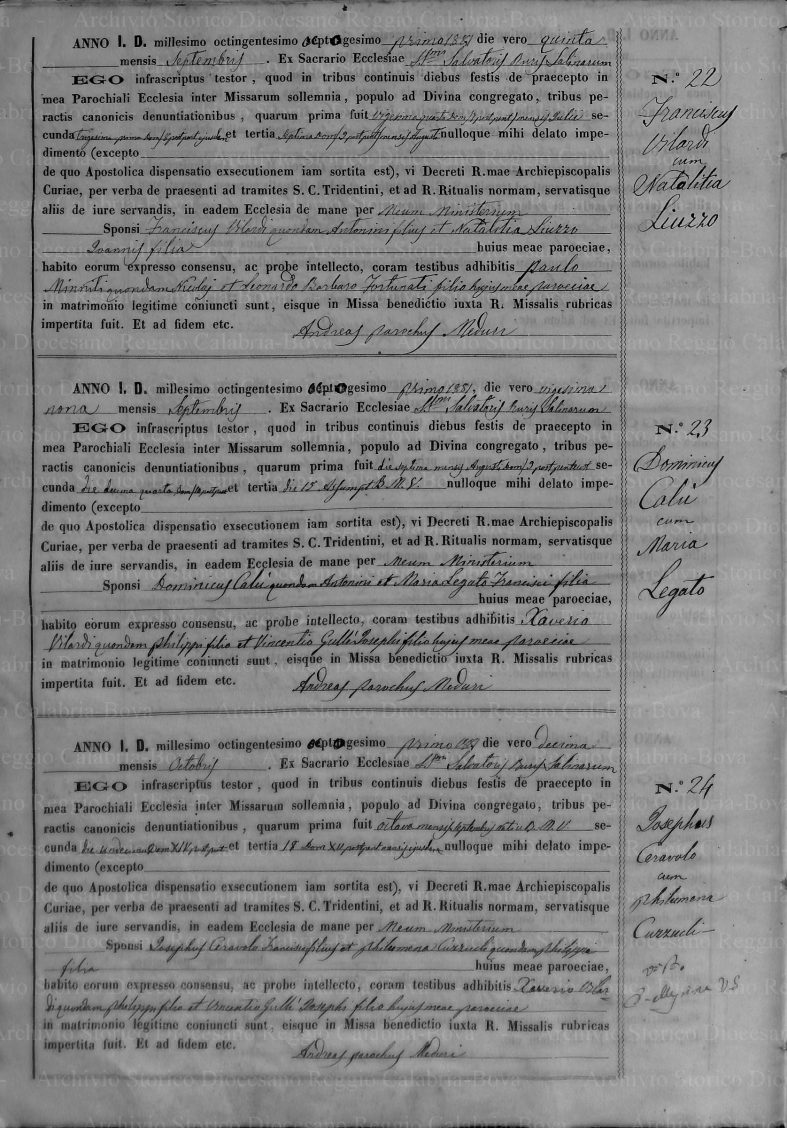 ANNO I. D. millesimo octingentesimo octogesimo primo 1881 die vero quinta
mensis Septembris . Ex Sacrario Ecclesiae SSmi Salvatoris Ruris Salinarum
EGO infrascriptus testor, quod in tribus continuis diebus festis de praecepto in
mea Parochiali Ecclesia inter Missarum sollemnia, populo ad Divina congregato, tribus pe-
ractis canonicis denuntiationibus, quarum prima fuit Vigesima quarta Dom: mensis Julii se-
cunda trigesima prima et tertia Septima Dom: mensis Augusti nulloque mihi delato impe-
dimento (excepto
de quo Apostolica dispensatio exsecutionem iam sortita est), vi Decreti R.mae Archiepiscopalis
Curiae, per verba de praesenti ad tramites S. C. Tridentini, et ad R. Ritualis normam, servatisque
aliis de iure servandis, in eadem Ecclesia de mane per Meum Ministerium
Sponsi Franciscus Vilardi quondam Antonini filius et Natalitia Liuzzo
Joannis filia huius meae paroeciae,
habito eorum expresso consensu, ac probe intellecto, coram testibus adhibitis Paulo
Minniti quondam Nicolaj et Leonardo Barbaro Fortunati filio hujus meae paroeciae
in matrimonio legitime coniuncti sunt, eisque in Missa benedictio iuxta R. Missalis rubricas
impertita fuit. Et ad fidem etc.
Andreas parochus Meduri
N.º 22
Franciscus
Vilardi
cum
Natalitia
Liuzzo
ANNO I. D. millesimo octingentesimo octogesimo primo 1881, die vero vigesima
nona mensis Septembris . Ex Sacrario Ecclesiae SSmi Salvatoris Ruris Salinarum
EGO infrascriptus testor, quod in tribus continuis diebus festis de praecepto in
mea Parochiali Ecclesia inter Missarum sollemnia, populo ad Divina congregato, tribus pe-
ractis canonicis denuntiationibus, quarum prima fuit die septima mensis Augusti Dom: se-
cunda die decima quarta et tertia die 15 Assumpt. B. M. V. nulloque mihi delato impe-
dimento (excepto
de quo Apostolica dispensatio exsecutionem iam sortita est), vi Decreti R.mae Archiepiscopalis
Curiae, per verba de praesenti ad tramites S. C. Tridentini, et ad R. Ritualis normam, servatisque
aliis de iure servandis, in eadem Ecclesia de mane per Meum Ministerium
Sponsi Dominicus Calù quondam Antonini et Maria Legato Francisci filia
huius meae paroeciae,
habito eorum expresso consensu, ac probe intellecto, coram testibus adhibitis Xaverio
Vilardi quondam Philippi filio et Vincentio Gullì Josephi filio hujus meae paroeciae
in matrimonio legitime coniuncti sunt, eisque in Missa benedictio iuxta R. Missalis rubricas
impertita fuit. Et ad fidem etc.
Andreas parochus Meduri
N.º 23
Dominicus
Calù
cum
Maria
Legato
ANNO I. D. millesimo octingentesimo octogesimo primo die vero decima
mensis Octobris . Ex Sacrario Ecclesiae SSmi Salvatoris Ruris Salinarum
EGO infrascriptus testor, quod in tribus continuis diebus festis de praecepto in
mea Parochiali Ecclesia inter Missarum sollemnia, populo ad Divina congregato, tribus pe-
ractis canonicis denuntiationibus, quarum prima fuit octava mensis Septembris B. M. V. se-
cunda die undecima et tertia 18 Dom XV nulloque mihi delato impe-
dimento (excepto
de quo Apostolica dispensatio exsecutionem iam sortita est), vi Decreti R.mae Archiepiscopalis
Curiae, per verba de praesenti ad tramites S. C. Tridentini, et ad R. Ritualis normam, servatisque
aliis de iure servandis, in eadem Ecclesia de mane per Meum Ministerium
Sponsi Josephus Ceravolo Francisci filius et Philumena Cuzzucli quondam Philippi
filia huius meae paroeciae,
habito eorum expresso consensu, ac probe intellecto, coram testibus adhibitis Xaverio Vilar
di quondam Philippi filio et Vincentio Gullì Josephi filio hujus meae paroeciae
in matrimonio legitime coniuncti sunt, eisque in Missa benedictio iuxta R. Missalis rubricas
impertita fuit. Et ad fidem etc.
Andreas parochus Meduri
N.º 24
Josephus
Ceravolo
cum
Philumena
Cuzzucli